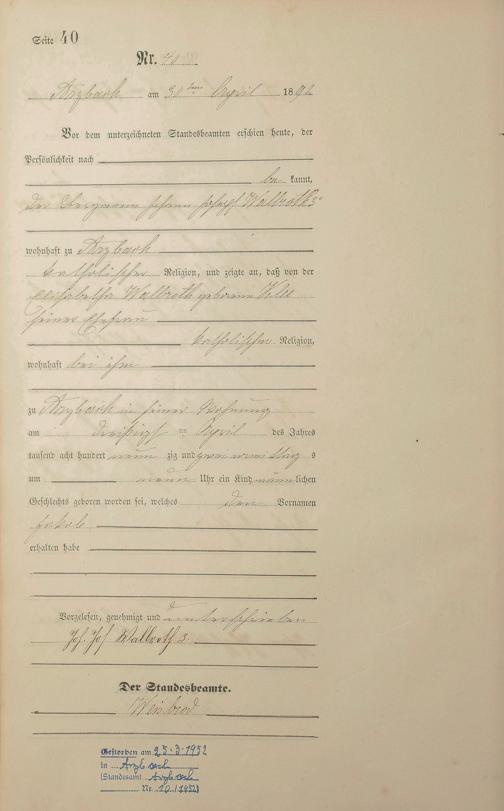 Seite 40
Nr. 40
Arzbach am 30ten April 1892
Vor dem unterzeichneten Standesbeamten erschien heute, der
Persönlichkeit nach
be kannt,
der Bergmann Johann Josef Wallroth 3r
wohnhaft zu Arzbach
katholischer Religion, und zeigte an, daß von der
Elisabetha Wallroth geborene
seiner Ehefrau
katholischer Religion,
wohnhaft bei ihm
zu Arzbach in seiner Wohnung
am dreißigsten April des Jahres
tausend acht hundert neun zig und zwei
um neun Uhr ein Kind männlichen
Geschlechts geboren worden sei, welches den Vornamen
Jakob
erhalten habe
Vorgelesen, genehmigt und unterschrieben
Joh. Jos. Wallroth 3.
Der Standesbeamte.
Weinbrod
Gestorben am 25.3.1952
in Arzbach
(Standesamt Arzbach
Nr. 10 (1952)